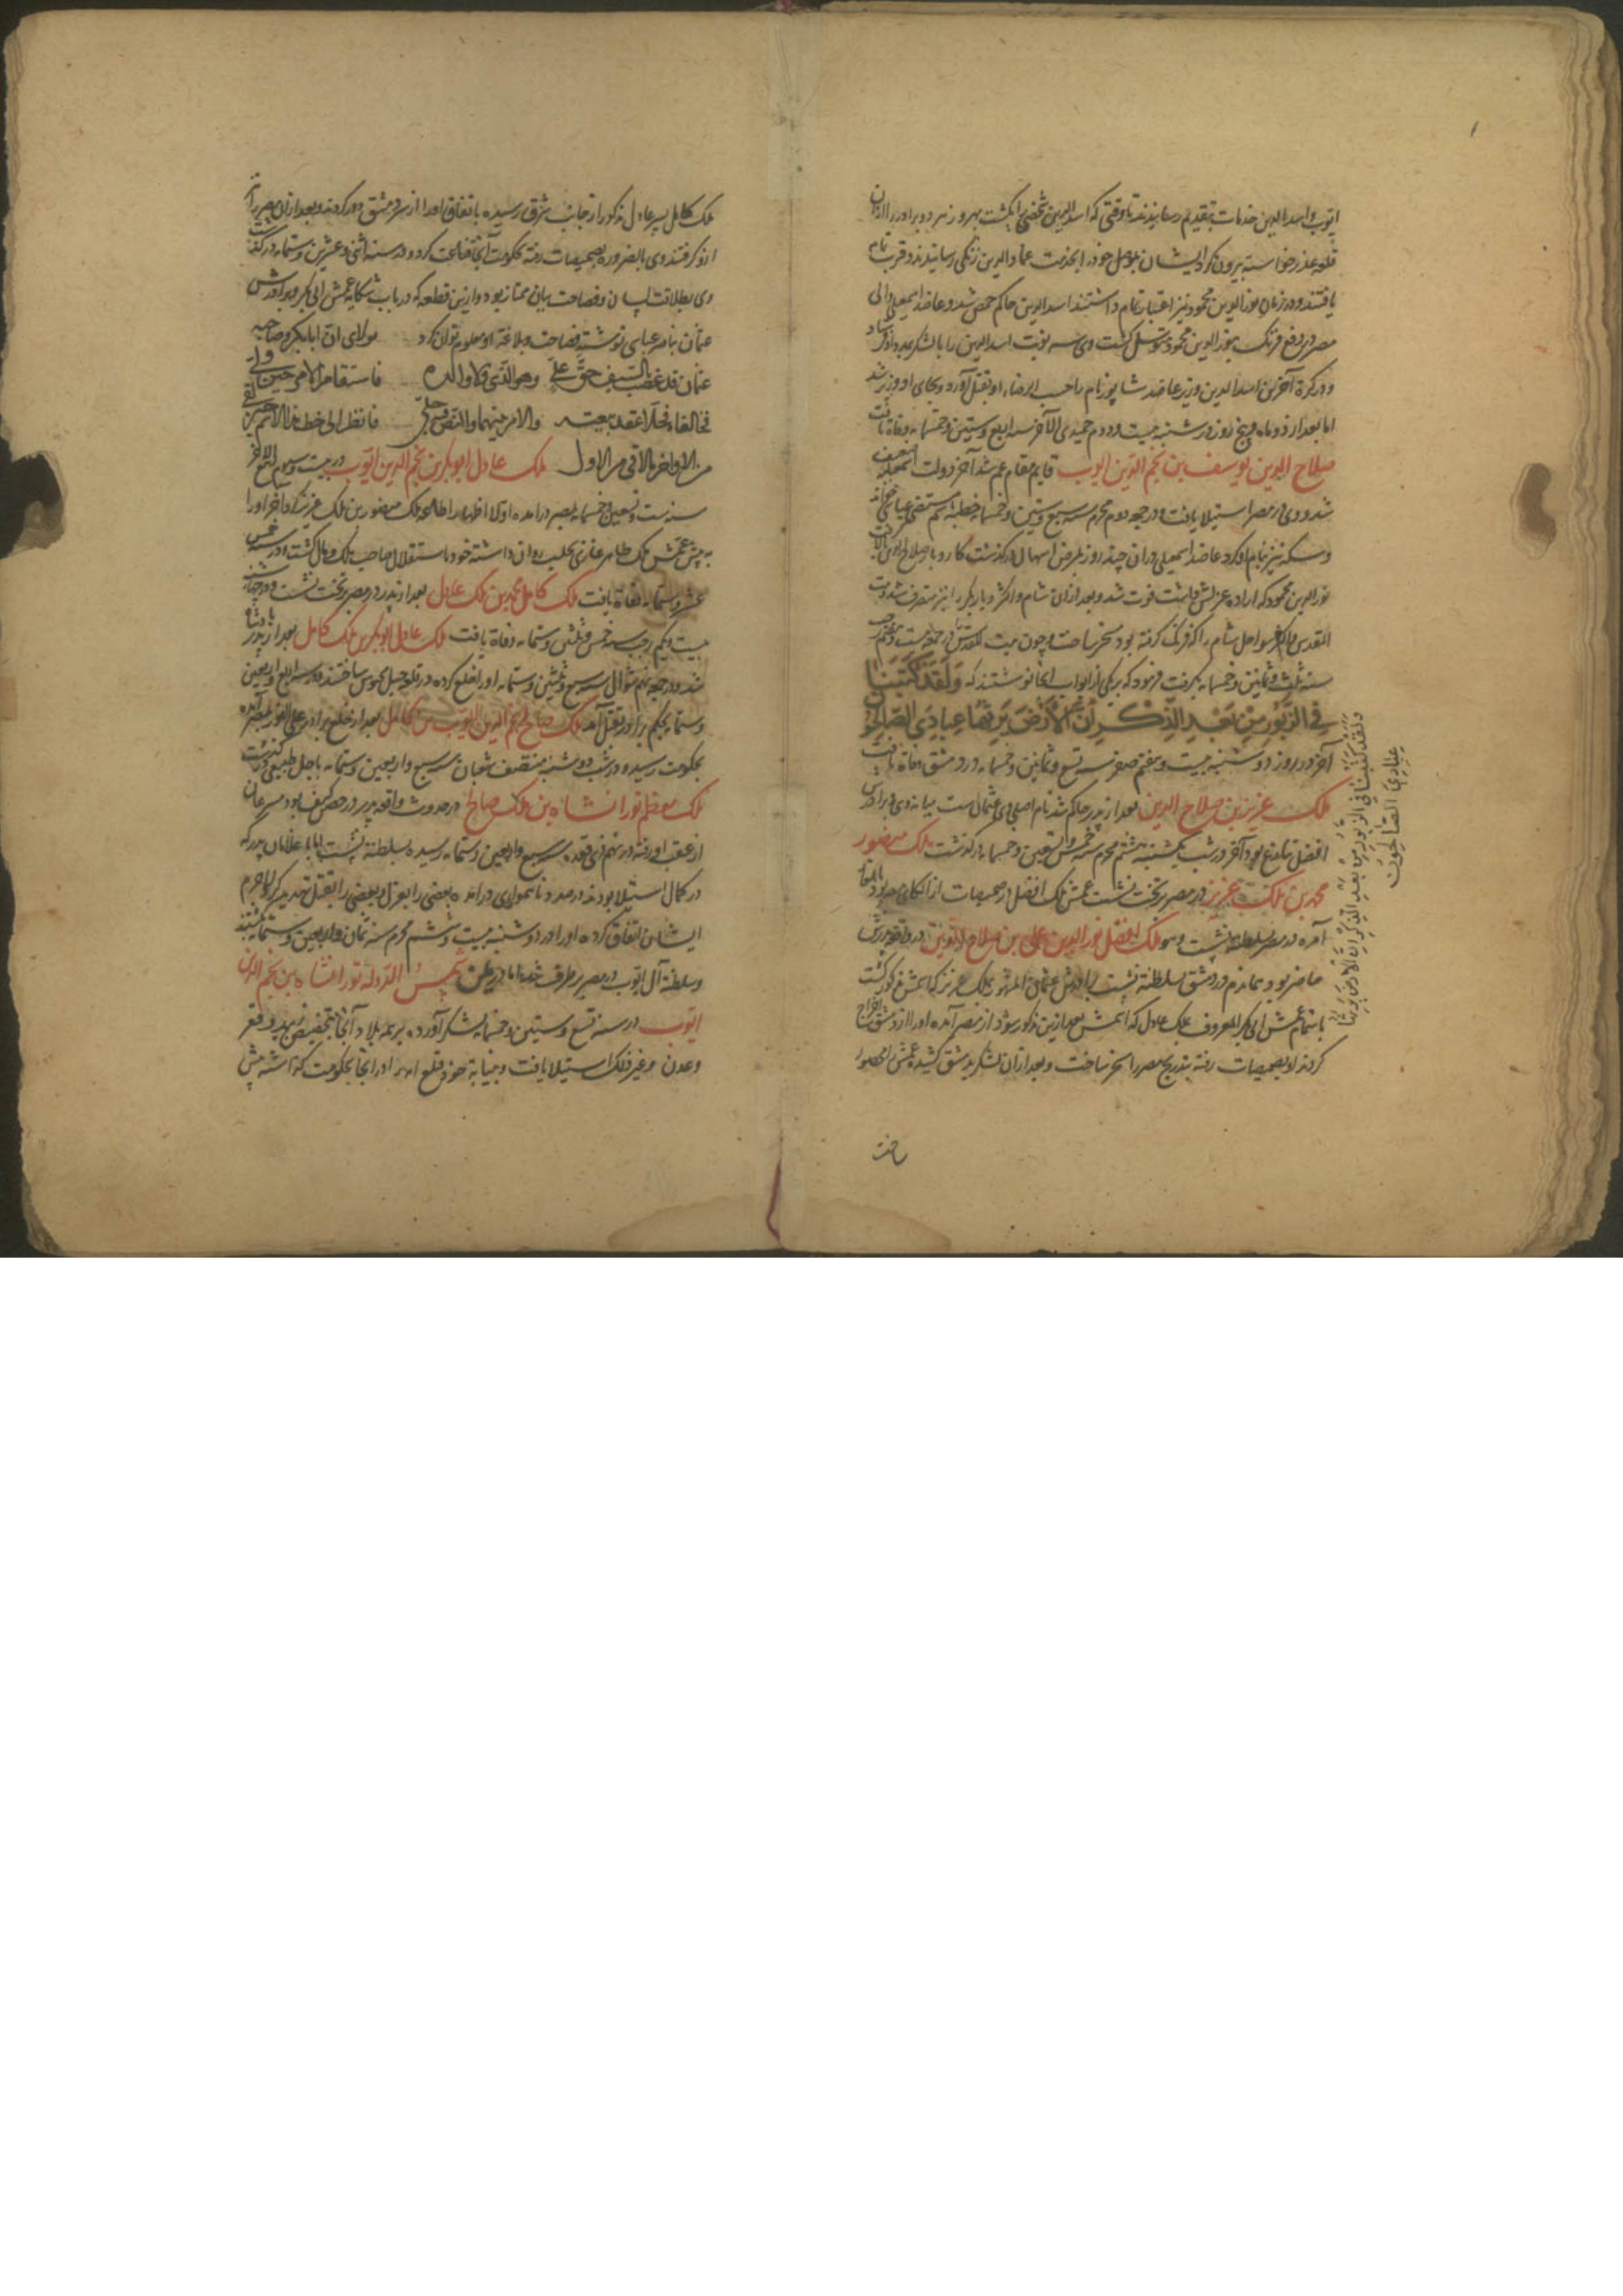 ایوب و اسدالدین خدمات بتقدیم رسانیدند تا وقتی که اسدالدین شخصی را بکشت بهروز هر دو برادر را از آن
قلعه عذر خواسته بیرون کرد ایشان بموصل خود را بخدمت عمادالدین زنگی رسانیدند و قربت تمام
یافتند و در زمان نورالدین محمود نیز اعتبار تمام داشتند اسدالدین حاکم حمص شد و عاضد اسمعیلی والی
مصر در دفع فرنگ بنورالدین محمود متوسل گشت وی سه نوبت اسدالدین را با لشکر بمدد او فرستاد
و در کرة آخرین اسدالدین وزیر عاضد شاپور نام را حسب الرضاء او بقتل آورد و بجای او وزیر شد
اما بعد از دو ماه و پنج روز در شنبه بیست و دوم جمیدی الآخر سنه اربع و ستین و خمسمایه وفاة یافت
صلاح الدین یوسف بن نجم الدین ایوب قایم مقام عم شد آخر دولت اسمعیلیه ضعیف
شد و وی در مصر استیلا یافت و در جمعه دوم محرم سنه سبع و ستین و خمسمایه خطبه باسم مستضی عباسی خواند
و سکه نیز بنام او کرد عاضد اسمعیلی در آن چند روز بمرض اسهال درگذشت کار و بار صلاح الدین بالا گرفت
نورالدین محمود که اراده عزلش داشت فوت شد و بعد از آن شام و اکثر دیار بکر را نیز متصرف شد و بیت
المقدس و اکثر سواحل شام را که فرنگ گرفته بود مسخر ساخت و چون بیت المقدس را در جمعه بیست و هفتم رجب
سنه ثلث و ثمانین و خمسمایه بگرفت فرمود که بر یکی از ابواب آنجا نوشتند که وَلَقَدْ كَتَبْنَا
فِي الزَّبُورِ مِنْ بَعْدِ الذِّكْرِ اَنَّ الْاَرْضَ يَرِثُهَا عِبَادِيَ الصَّالِحُونَ
آخر در روز دوشنبه بیست و هفتم صفر سنه تسع و ثمانین و خمسمایه در دمشق وفاة یافت
ملک عزیز بن صلاح الدین بعد از پدر حاکم شد نام اصلی وی عثمان است میانه وی و برادرش
افضل تنازع بود آخر در شب یکشنبه بیستم محرم سنه خمس و تسعین و خمسمایه درگذشت ملک منصور
محمد بن ملک عزیز در مصر بر تخت نشست عمش ملک افضل در صمیصات از الکای خود بود بایلغار
آمده در مصر بسلطنة نشست و هو ملک افضل نورالدین علی بن صلاح الدین در واقعه پدرش
حاضر بود بماندم در دمشق بسلطنة نشست برادرش عثمان المشهور بملک عزیز که اسمش مذکور گشت
باستمام عمش ابی بکر المعروف بملک عادل که اسمش بعد ازین مذکور شود از مصر آمده او را از دمشق اخراج
کردند او بصمیصات رفته بتدریج مصر را مسخر ساخت و بعد از آن لشکر بدمشق کشیده عمش را محصور
ساخت
ولقد کتبنا فی الزبور من بعد الذکر ان الارض یرثها
عبادی الصالحون
ملک کامل پسر عادل مذکور از جانب شرق رسیده باتفاق او را از سر دمشق دور کردند و بعد از آن مصر را نیز
ازو گرفتند وی بالضروره بصمیصات رفته بحکومت آنجا قناعت کرد و در سنه اثنی و عشرین و ستمایه درگذشت
وی بطلاقت لسان و فصاحت بیان ممتاز بود و ازین قطعه که در باب شکایه عمش ابی بکر و برادرش
عثمان بناصر عباسی نوشته فصاحت و بلاغة او معلوم توان کرد مولای ان ابابکر و صاحبه
عثمان قد غصبا بالسیف حق علی وهو الذی کان والده فاستقام الامر حین ولی
فخالفاه فحلا عقد بیعته والامر بینهما والنص فیه جلی فانظر الی حظ هذا الاسم کیف لقی
من الاواخر مالاقی من الاول ملک عادل ابوبکر بن نجم الدین ایوب در بیست و سیوم ربیع الآخر
سنه ست و تسعین و خمسمایه بمصر درآمده اولا اظهار اطاعه ملک منصور بن ملک عزیز کرد آخر او را
به پیش عمش ملک طاهر غازی بحلب روان داشته خود باستقلال صاحب ملک و مال گشت و در سنه خمس
عشر و ستمایه وفاة یافت ملک کامل محمد بن ملک عادل بعد از پدر در مصر بر تخت نشست و در چهارشنبه
بیست و یکم رجب سنه خمس و ثلثین و ستمایه وفاة یافت ملک عادل ابوبکر بن ملک کامل بعد از پدر پادشاه
شد و در جمعه نهم شوال سنه سبع و ثلثین و ستمایه او را خلع کرده در قلعه جبل محبوس ساختند و در سنه اربع و اربعین
و ستمایه بحکم برادر بقتل آمد ملک صالح نجم الدین ایوب بن کامل بعد از خلع برادر علی الفور بمصر آمده
بحکومت رسیده و در شب دوشنبه منتصف شعبان سنه سبع و اربعین و ستمایه باجل طبیعی درگذشت
ملک معظم تورانشاه بن ملک صالح در حدوث واقعه پدر در حصن کیف بود مسرعان
از عقب او رفته در نهم ذی قعده سنه سبع و اربعین و ستمایه رسیده بسلطنة نشست اما با غلامان پدر که
در کمال استیلا بودند در صدد ناهمواری درآمده بعضی را بعزل و بعضی را بقتل تهدید کرد لاجرم
ایشان اتفاق کرده او را در دوشنبه بیست و ششم محرم سنه ثمان و اربعین و ستمایه بکشتند
و سلطنة آل ایوب در مصر برطرف شد اما در یمن شمس الدوله تورانشاه بن نجم الدین
ایوب در سنه تسع و ستین و خمسمایه لشکر آورده بر همه بلاد آنجا بتخصیص زبید و تعز
و عدن و غیر ذلک استیلا یافت و بنیابة خود قلع امرا را در آنجا بحکومت گذاشته پیش